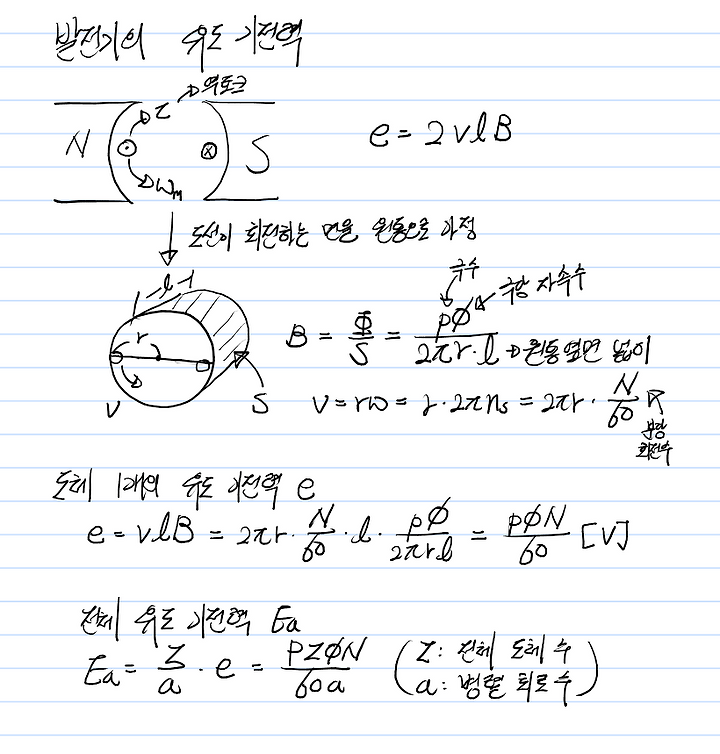 발전기의 유도 기전력
τ → 역토크
N ⊙ ⊗ S
ωm
e = 2vlB
도선이 회전하는 면을 원통으로 가정
l
r
v
S
극수
극당 자속수
B = Φ/S = pϕ/(2πr·l) → 원통 옆면 넓이
v = rω = r·2πns = 2πr·N/60
분당 회전수
도체 1개의 유도 기전력 e
e = vlB = 2πr·N/60·l·pϕ/(2πrl) = pϕN/60 [V]
전체 유도 기전력 Ea
Ea = Z/a·e = PZϕN/60a (Z: 전체 도체 수
a: 병렬 회로 수)